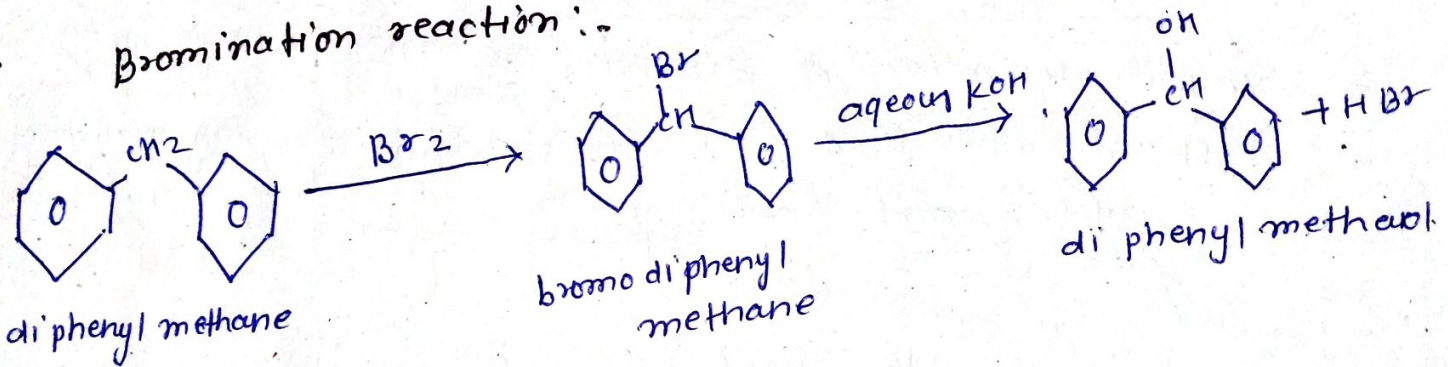 Bromination reaction :-
CH2
Br2
Br
CH
aqeous KOH
OH
CH
+ HBr
di phenyl methane
bromo di phenyl
methane
di phenyl methanol.